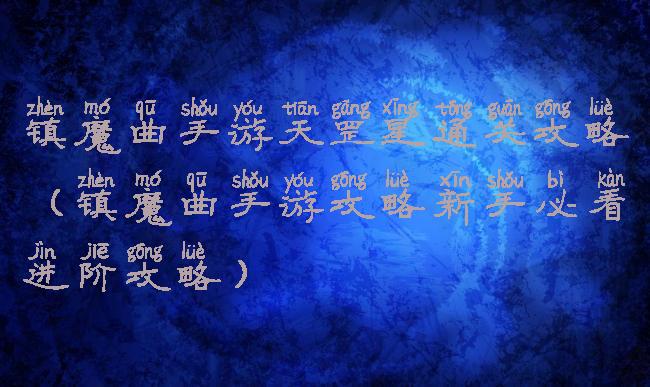 zhèn mó qū shǒu yóu tiān gāng xīng tōng guān gōng lüè
镇魔曲手游天罡星通关攻略
zhèn mó qū shǒu yóu gōng lüè xīn shǒu bì kàn
（镇魔曲手游攻略新手必看
jìn jiē gōng lüè
进阶攻略）